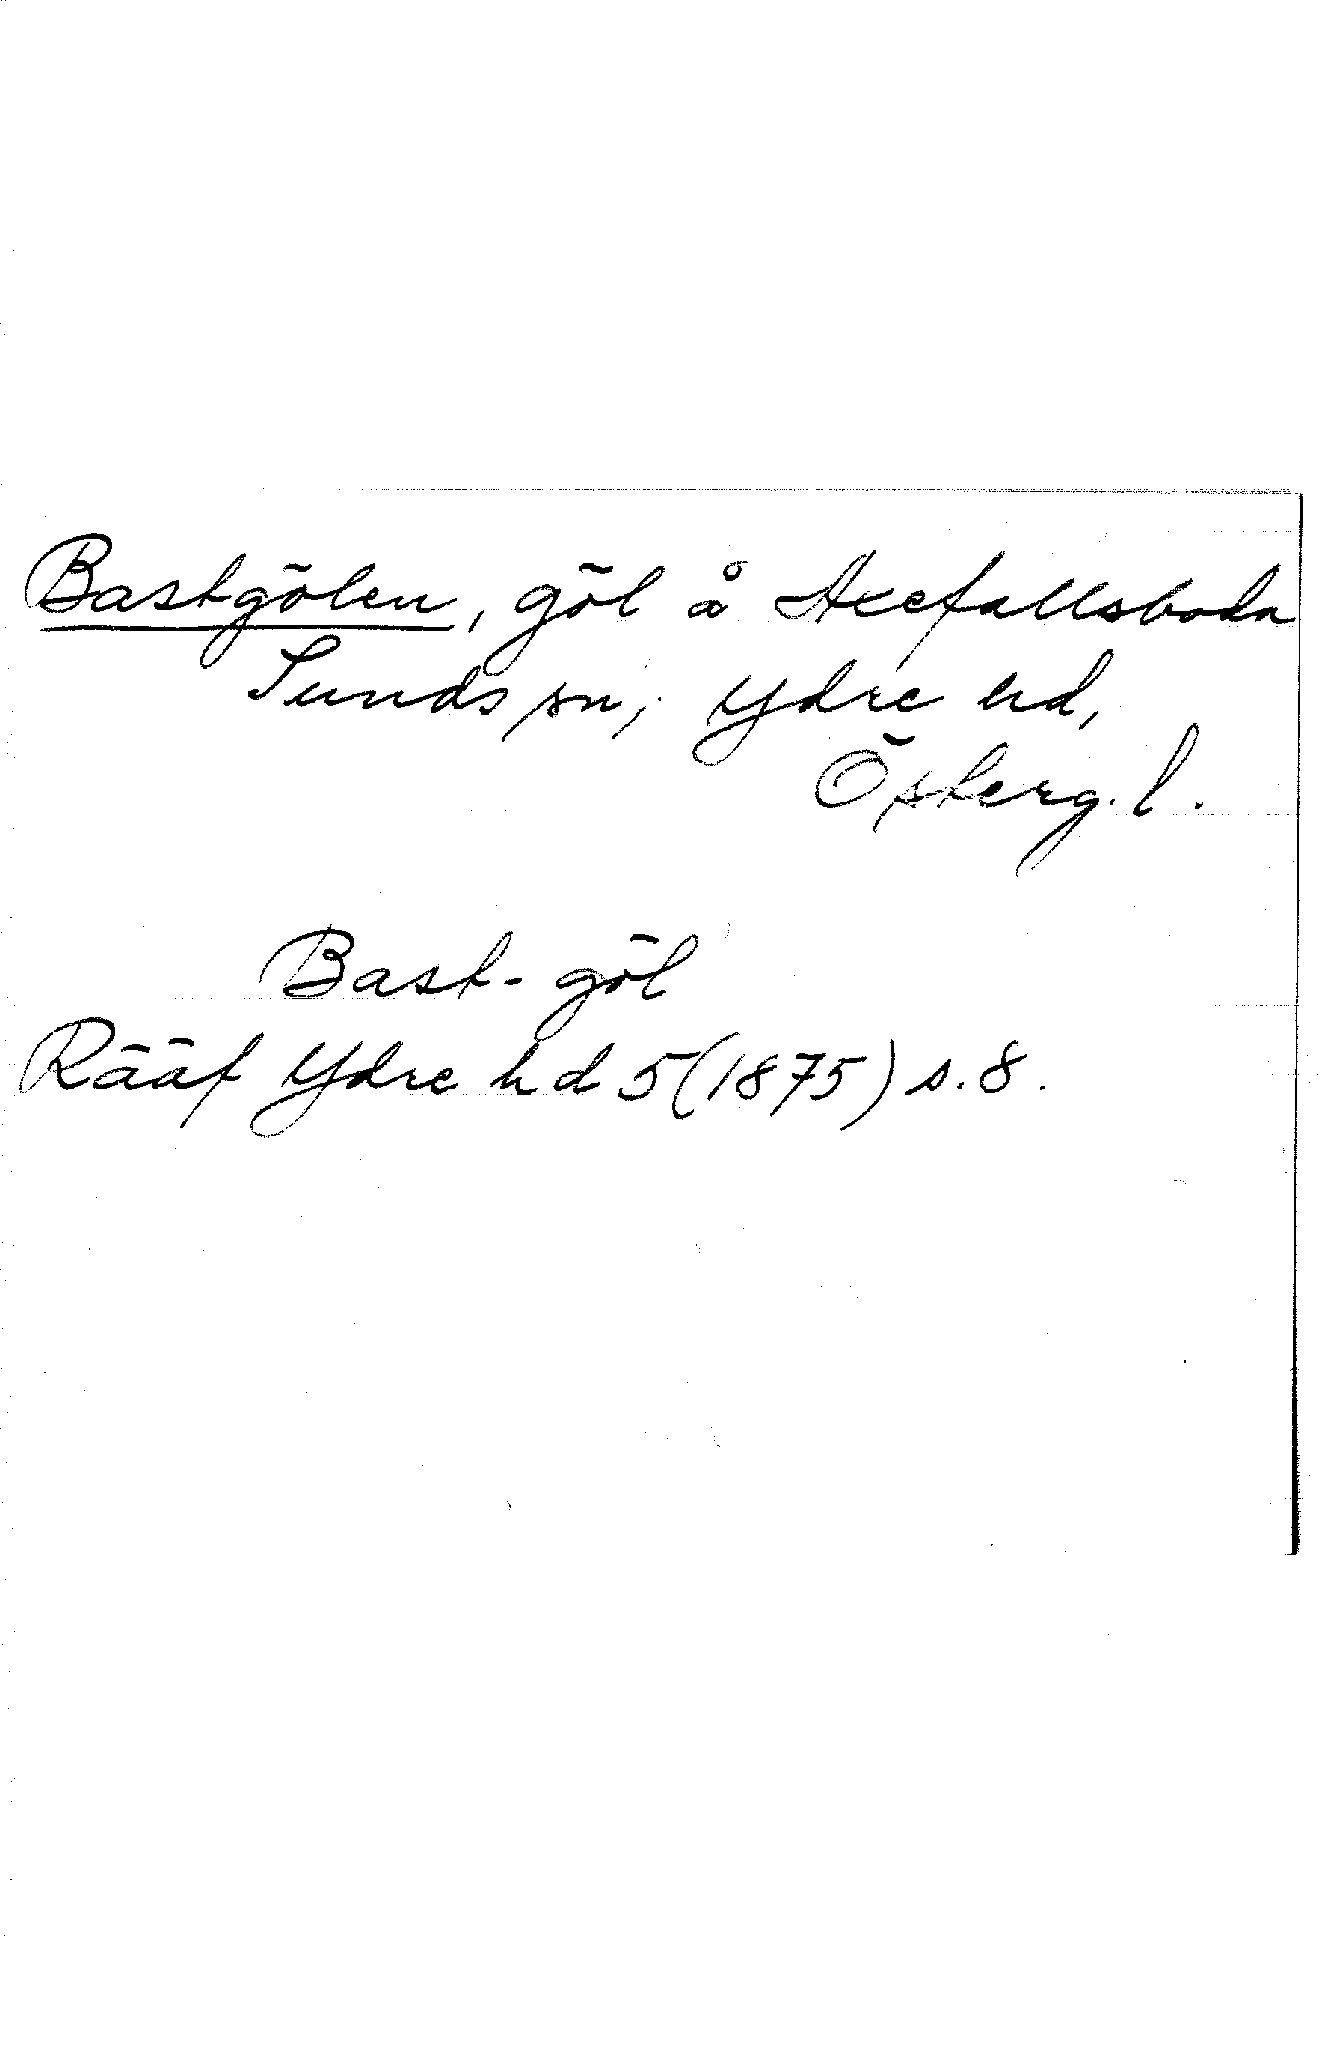 Bastgölen, göl å Axefallsboda
Sunds sn, Ydre hd,
Österg. l.
Bast- göl
Rääf Ydre hd 5 (1875) s. 8.